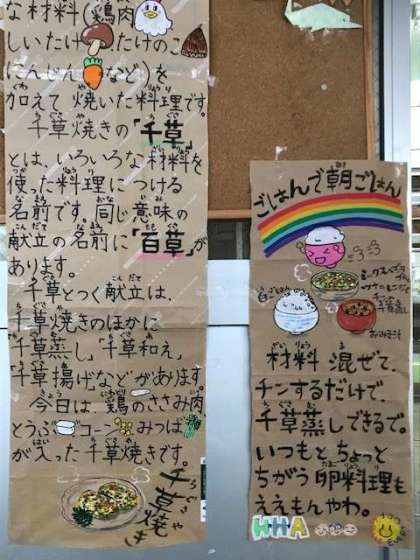 な材料(鶏肉
しいたけ たけのこ
にんじん など)を
加えて焼いた料理です。
千草焼きの「千草」
とは、いろいろな材料を
使った料理につける
名前です。同じ意味の
献立の名前に「百草」が
あります。
千草とつく献立は、
千草焼きのほかに
「千草蒸し」「千草和え」
「千草揚げ」などがあります。
今日は、鶏のささみ肉、
とうふ コーン みつば
が入った千草焼きです。
千草焼き
ちぐさやき
ごはんで朝ごはん
白ごはん
千草蒸し
おみそしる
材料混ぜて、
チンするだけで、
千草蒸しできるで。
いつもとちょっと
ちがう卵料理も
ええもんやわ。